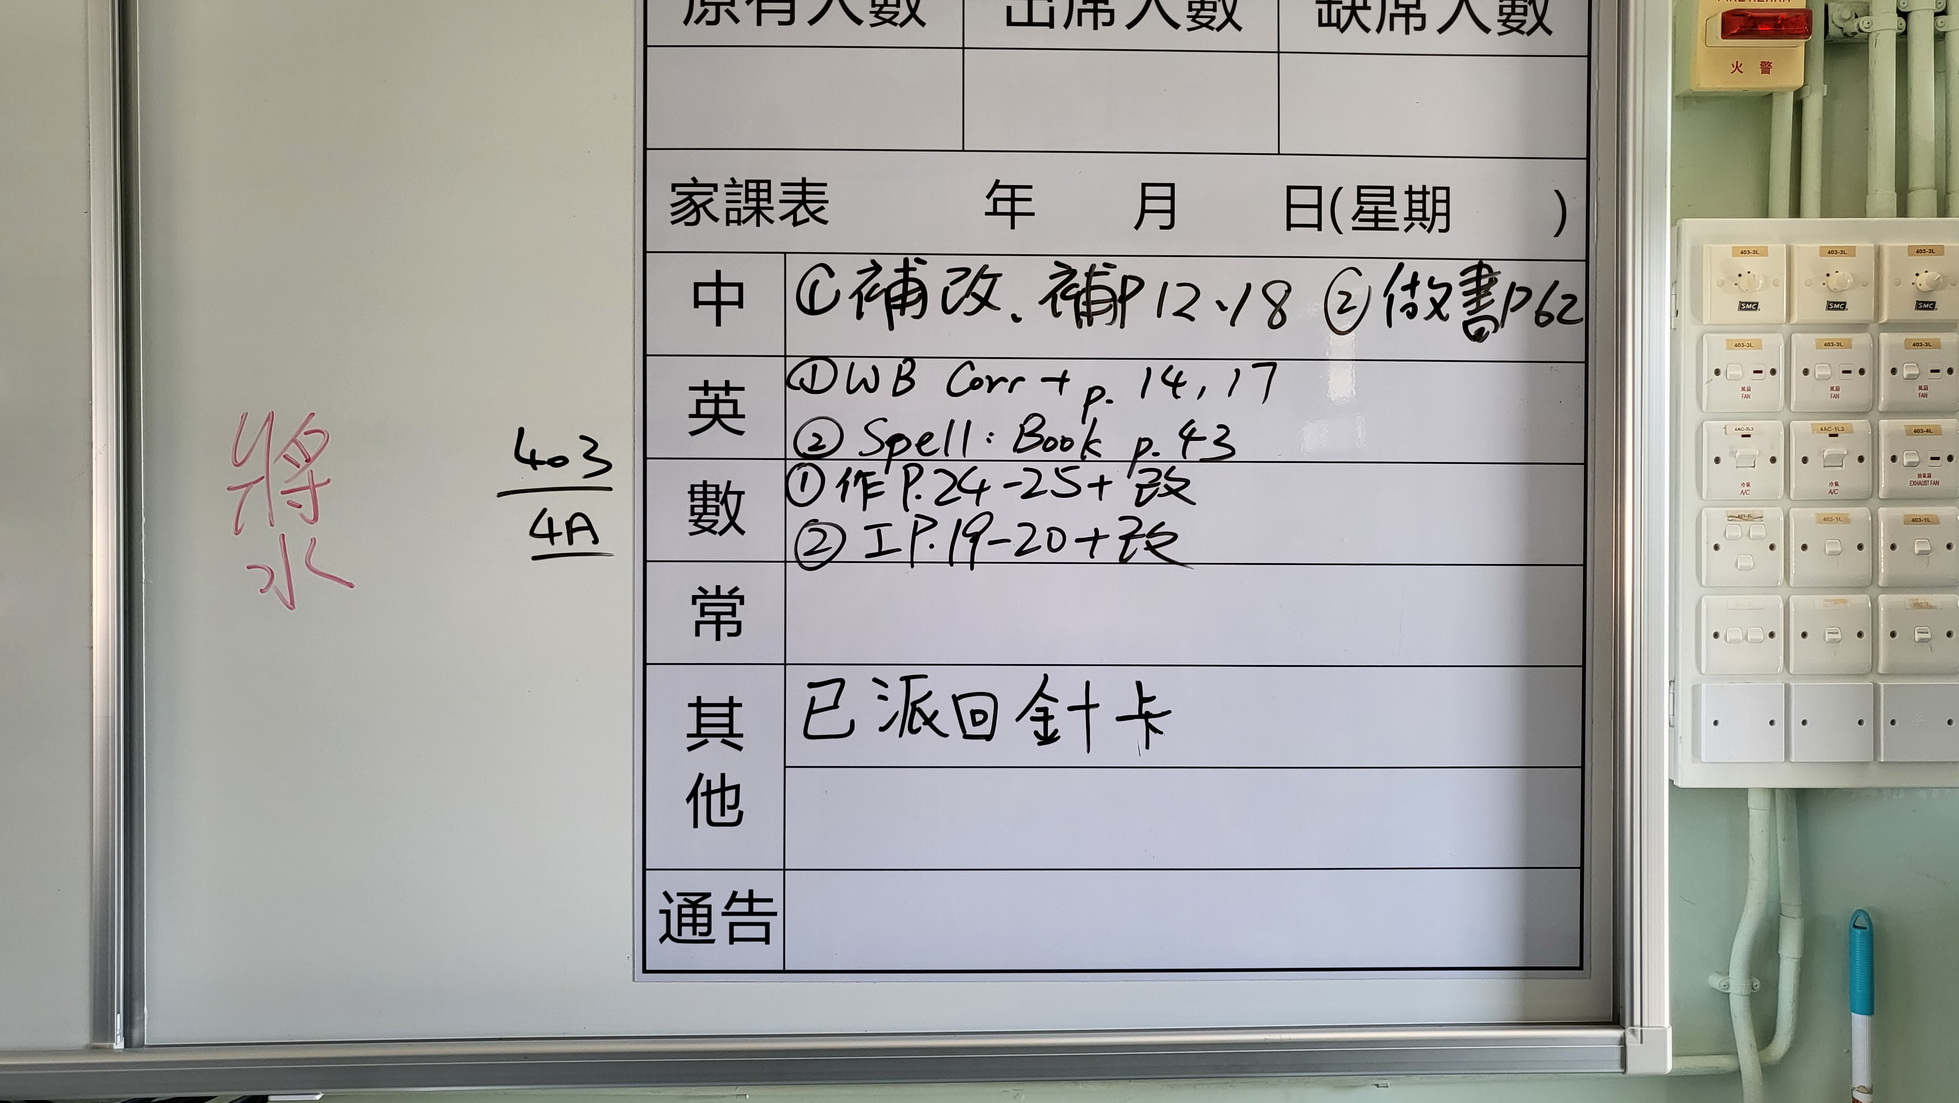 原有人數 出席人數 缺席人數
家課表 年 月 日(星期 )
中 ①補改、補P12、18 ②做書P62
英 ①WB Corr + p. 14, 17
② Spell: Book p.43
數 ①作P.24-25+改
② 工P.19-20+改
常
其他 已派回針卡
通告
403
4A
將
水
火 警
403-3L 403-3L 403-3L
SMC SMC SMC
403-3L 403-3L 403-3L
風扇 風扇 風扇
FAN FAN FAN
403-4L
冷氣 冷氣 抽氣扇
A/C A/C EXHAUST FAN
403-1L 403-1L